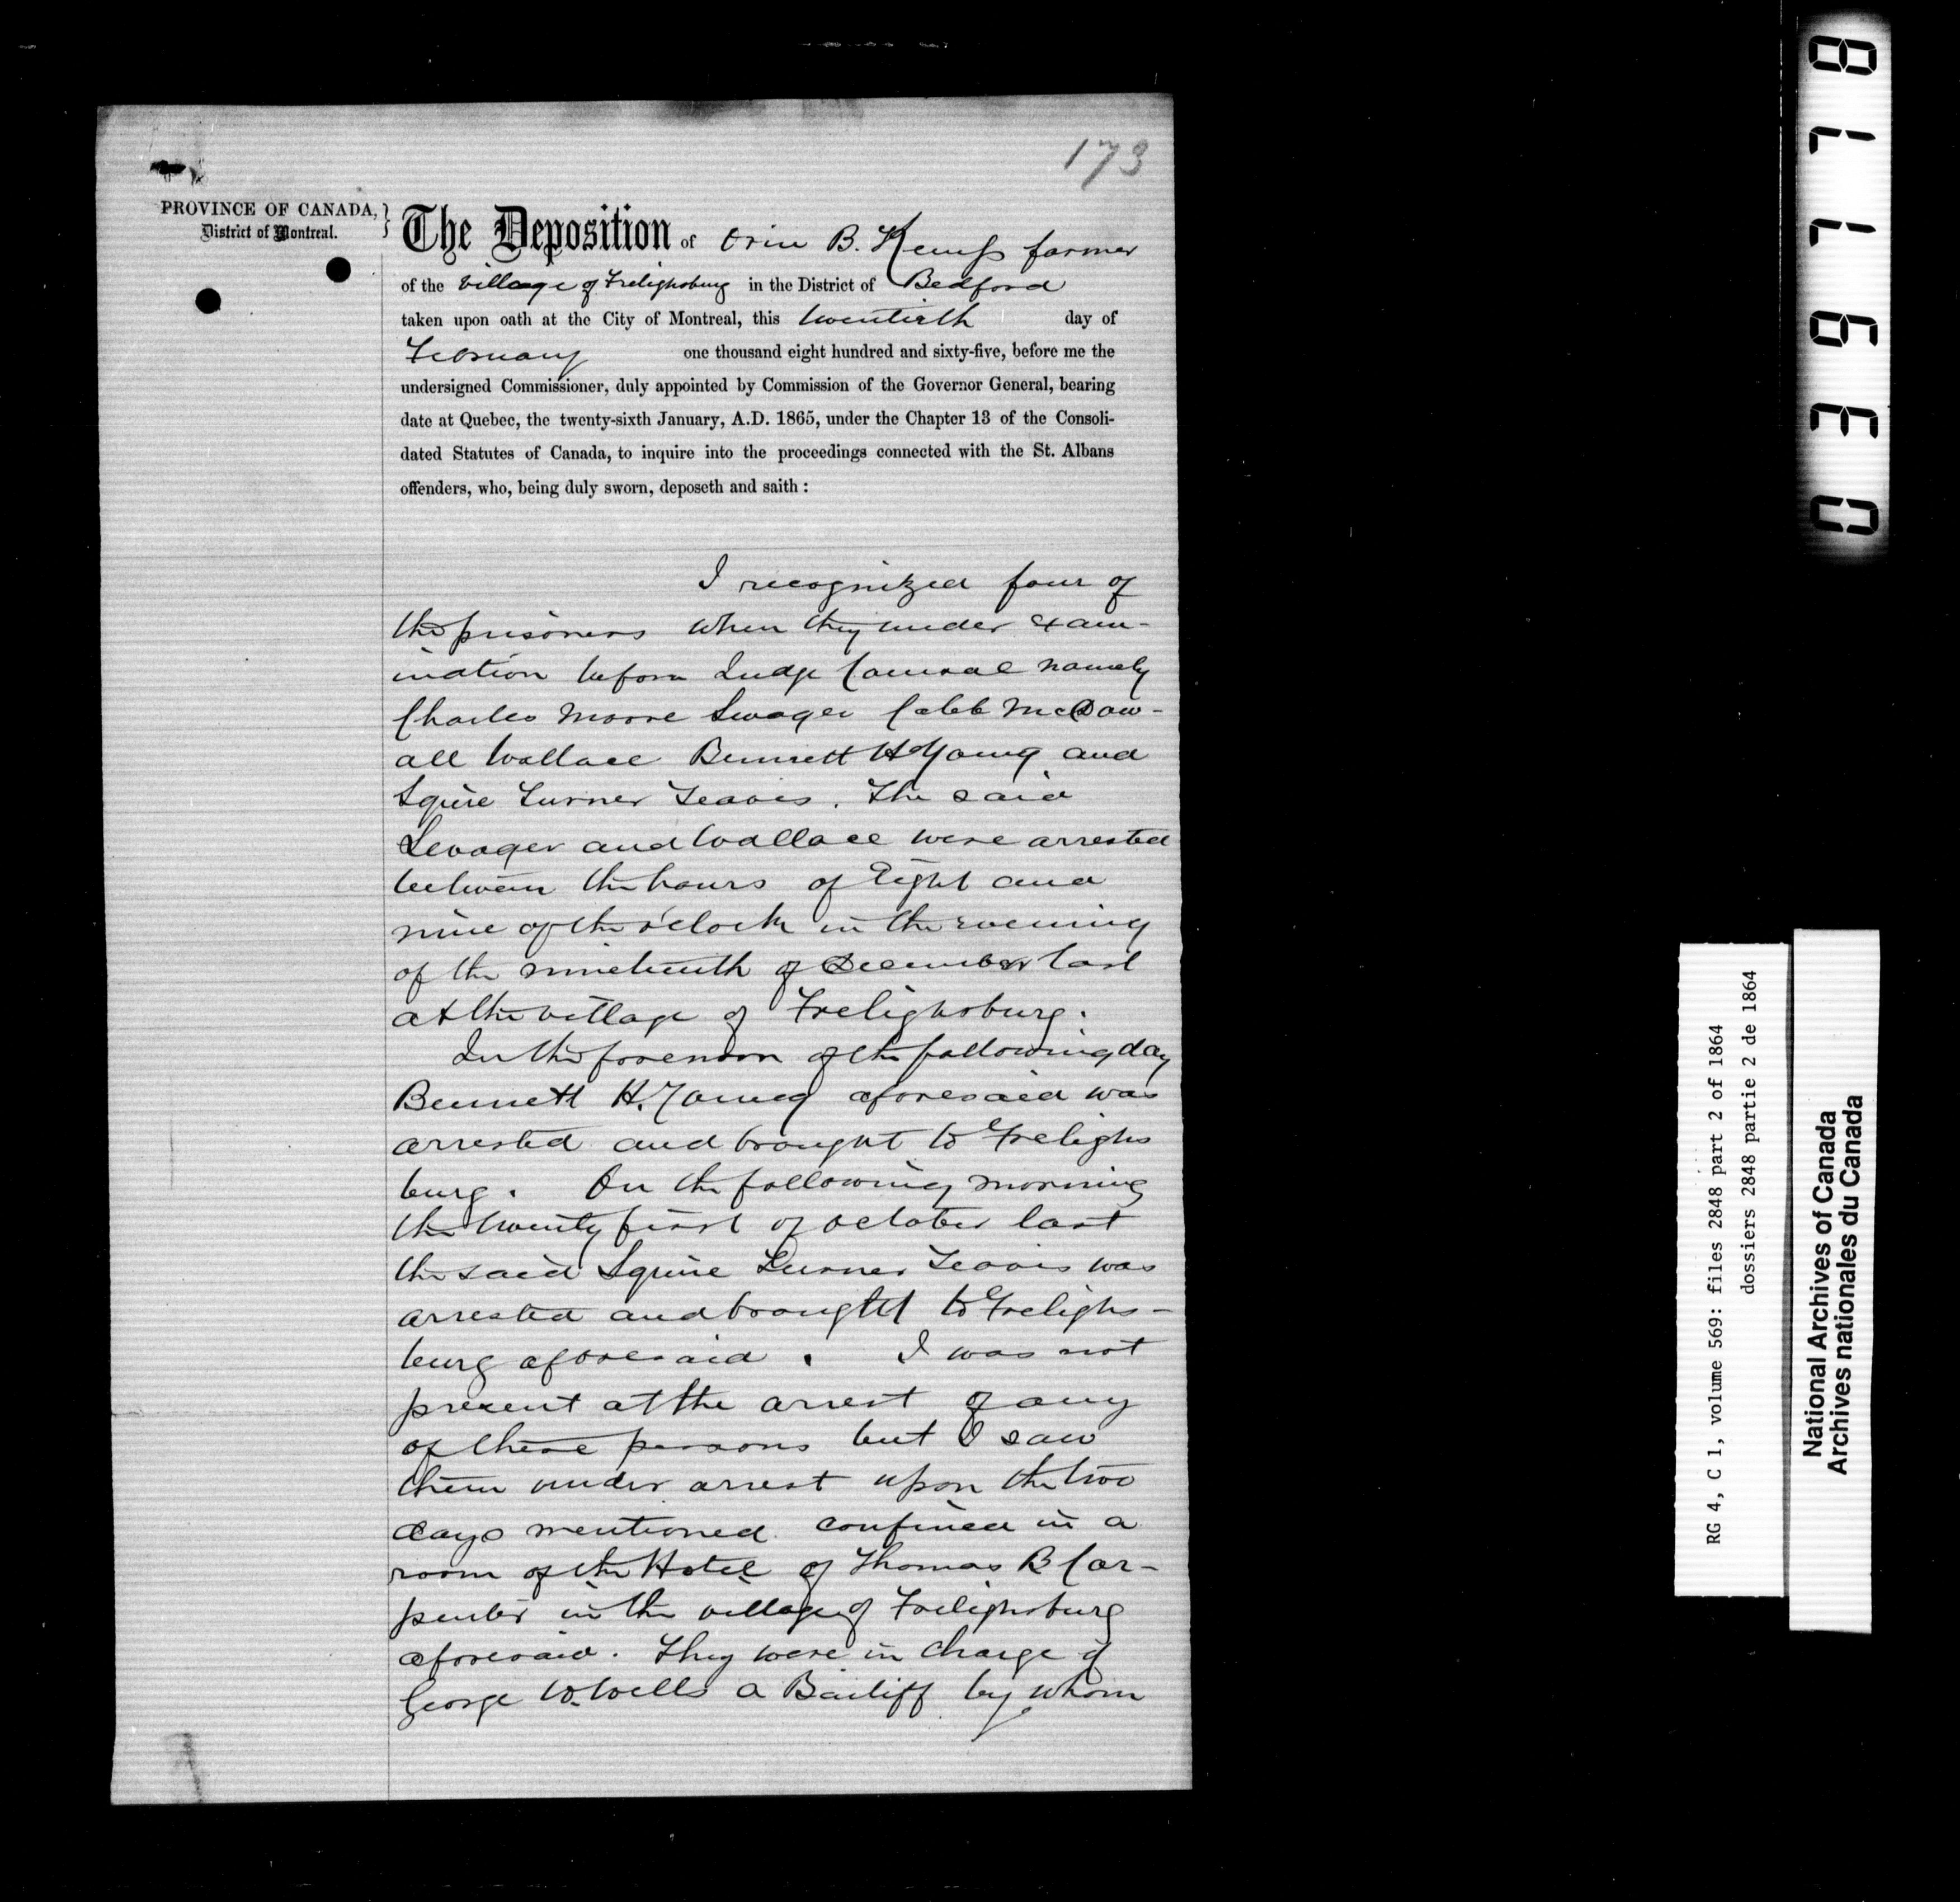 173
PROVINCE OF CANADA, }
District of Montreal.
The Deposition of Orin B. Kemp farmer
of the village of Frelighsburg in the District of Bedford
taken upon oath at the City of Montreal, this twentieth day of
February one thousand eight hundred and sixty-five, before me the
undersigned Commissioner, duly appointed by Commission of the Governor General, bearing
date at Quebec, the twenty-sixth January, A.D. 1865, under the Chapter 13 of the Consoli-
dated Statutes of Canada, to inquire into the proceedings connected with the St. Albans
offenders, who, being duly sworn, deposeth and saith :
I recognized four of
the prisoners when they under exam-
ination before Judge Coursol namely
Charles Moore Swager Caleb McDow-
all Wallace Bennett H Young and
Squire Turner Teavis. The said
Swager and Wallace were arrested
between the hours of Eight and
nine of the o'clock in the evening
of the nineteenth of December last
at the village of Frelighsburg.
In the forenoon of the following day
Bennett H. Young aforesaid was
arrested and brought to Frelighs
burg. On the following morning
the twenty first of october last
the said Squire Turner Teavis was
arrested and brought to Frelighs-
burg aforesaid. I was not
present at the arrest of any
of these persons but I saw
them under arrest upon the two
days mentioned confined in a
room of the Hotel of Thomas B Car-
penter in the village of Frelighsburg
aforesaid. They were in charge of
George W. Wells a Bailiff by whom
RG 4, C 1, volume 569: files 2848 part 2 of 1864
dossiers 2848 partie 2 de 1864
National Archives of Canada
Archives nationales du Canada